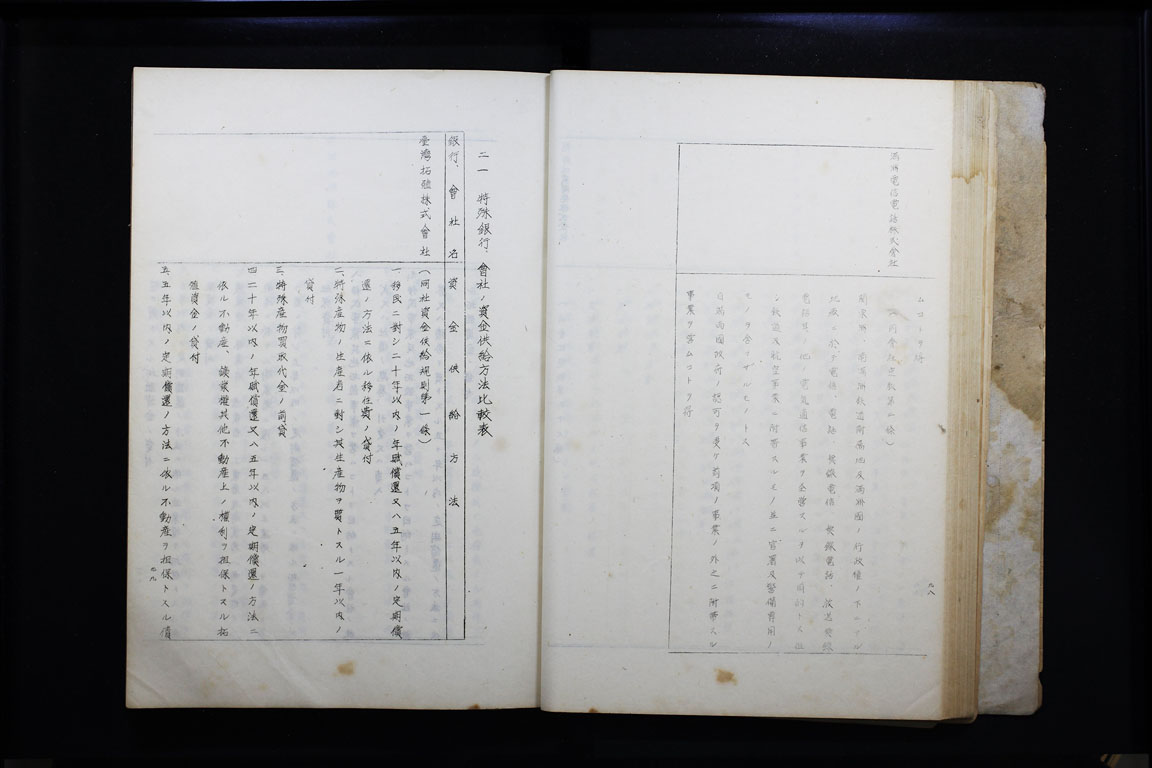 満洲電信電話株式會社
ムコトヲ得
(同會社定款第一條)
關東州、南滿洲鉄道附屬地及滿洲國ノ行政權ノ下ニアル
地域ニ於テ電信、電話、無線電信、無線電話、放送無線
電話其ノ他ノ電氣通信事業ヲ經營スルヲ以テ目的トス但
シ鉄道及航空事業ニ附帶スルモノ並ニ官署及警備專用ノ
モノヲ含マザルモノトス
日滿兩國政府ノ認可ヲ受ケ前項ノ事業ノ外之ニ附帶スル
事業ヲ營ムコトヲ得
九八
二一 特殊銀行、會社ノ資金供給方法比較表
銀行、會社名
資金供給方法
臺灣拓殖株式會社
(同社資金供給規則第一條)
一、移民ニ對シ二十年以内ノ年賦償還又ハ五年以内ノ定期償
還ノ方法ニ依ル移住費ノ貸付
二、特殊産物ノ生産者ニ對シ其生産物ヲ買トスル一年以内ノ
貸付
三、特殊産物買取代金ノ前貸
四、二十年以内ノ年賦償還又ハ五年以内ノ定期償還ノ方法ニ
依ル不動産、鑛業權其他不動産上ノ權利ヲ担保トスル拓
殖資金ノ貸付
五、五年以内ノ定期償還ノ方法ニ依ル不動産ヲ担保トスル債
九九